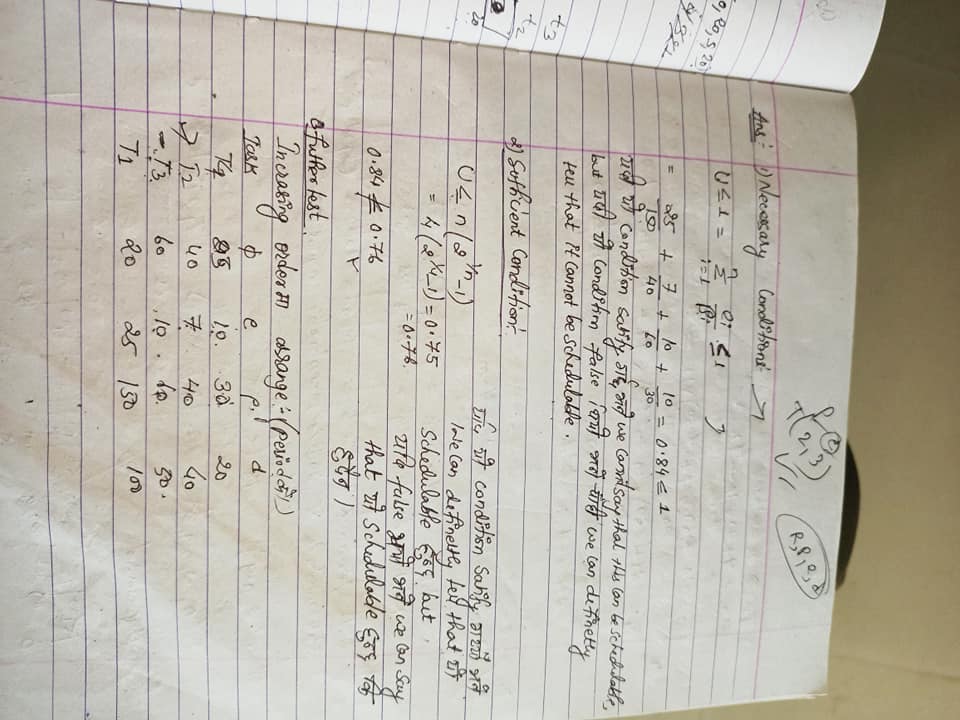 P e
T(2,3)
R, P, e, d
Ans: 1) Necessary Conditions:
U ≤ 1 = n Σ i=1 ei/Pi ≤ 1
= 25/150 + 7/40 + 10/60 + 10/30 = 0.84 ≤ 1
यदि यो Condition satisfy we cannot say that this can be schedulable,
but यदि यो condition false भयो भने we can definetly
tell that it cannot be schedulable.
2) Sufficient Condition:
U ≤ n(2^1/n - 1)
= 4(2^1/4 - 1) = 0.75
= 0.76.
0.84 ≰ 0.76
यदि यो condition satisfy भयो भने
We can definetly tell that यो
Schedulable हुन्छ but
यदि false भयो भने we can say
that यो schedulable हुन्छ कि
हुदैन।
Futher test
Increasing order मा arrange:- (period को)
Task φ e p, d
T4 10 30 20
T2 40 7 40 40
T3 60 10 60 50
T1 20 25 150 100
t3
t2
20